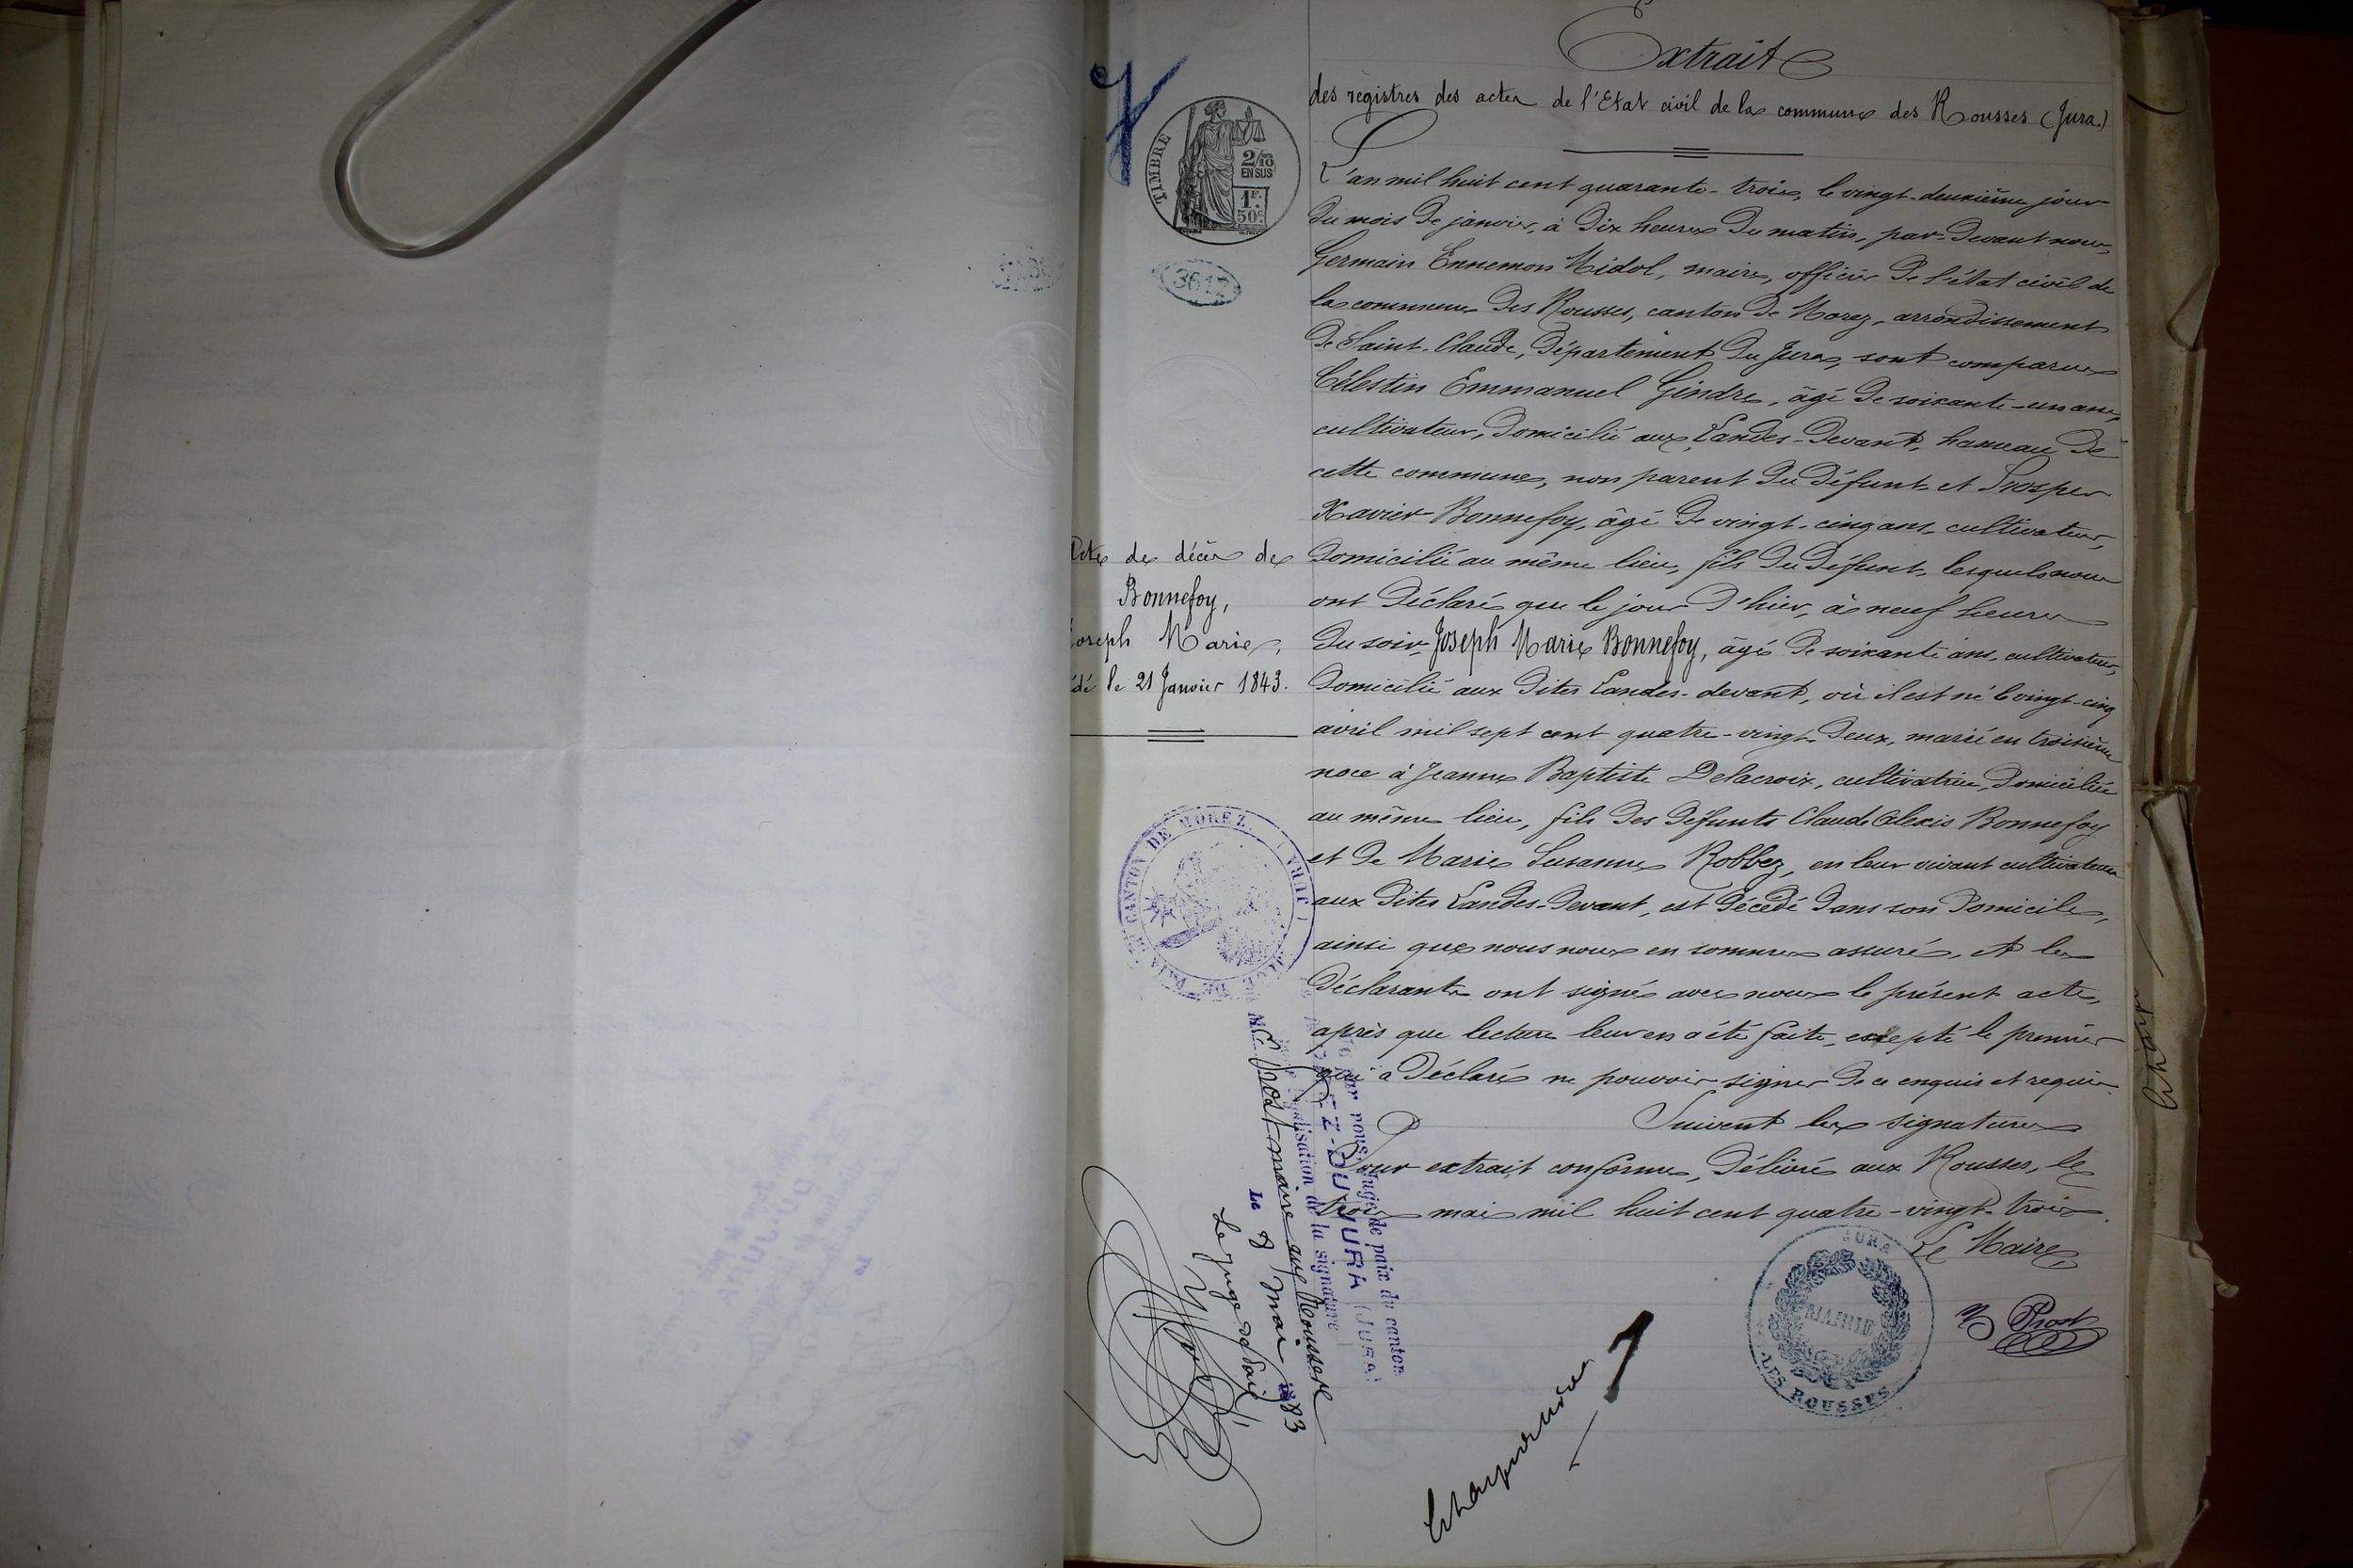 Extrait
des registres des actes de l'Etat civil de la commune des Rousses (Jura.)
TIMBRE
2/10
EN SUS
1F.
50c
3617
L'an mil huit cent quarante-trois, le vingt-deuxième jour
du mois de janvier, à dix heures du matin, par-devant nous,
Germain Ennemon Midol, maire, officier de l'état civil de
la commune des Rousses, canton de Morez, arrondissement
de Saint-Claude, département du Jura, sont comparus
Célestin Emmanuel Gindre, âgé de soixante-un ans,
cultivateur, domicilié aux Landes-devant, hameau de
cette commune, non parent du défunt et Prosper
Xavier Bonnefoy, âgé de vingt-cinq ans, cultivateur,
domicilié au même lieu, fils du défunt, lesquels nous
ont déclaré que le jour d'hier, à neuf heures
du soir Joseph Marie Bonnefoy, âgé de soixante ans, cultivateur,
domicilié aux dites Landes-devant, où il est né le vingt-cinq
avril mil sept cent quatre-vingt-deux, marié en troisième
noce à Jeanne Baptiste Delacroix, cultivatrice, domiciliée
au même lieu, fils des défunts Claude Alexis Bonnefoy
et de Marie Susanne Robbez, en leur vivant cultivateurs
aux dites Landes-devant, est décédé dans son domicile,
ainsi que nous nous en sommes assuré, et les
déclarants ont signé avec nous le présent acte,
après que lecture leur en a été faite, excepté le premier
qui a déclaré ne pouvoir signer de ce enquis et requis.
Suivent les signatures
Pour extrait conforme, délivré aux Rousses, le
trois mai mil huit cent quatre-vingt-trois.
Le Maire,
Prost
JURA
MAIRIE
LES ROUSSES
Acte de décès de
Bonnefoy,
Joseph Marie,
dé le 21 Janvier 1843.
CANTON DE MOREZ (JURA)
DE PAIX
par nous, Juge de paix du canton
EZ-DU-JURA (JURA)
légalisation de la signature
M. Prost maire aux Rousses
Le 8 mai 1883
Le juge de paix
1